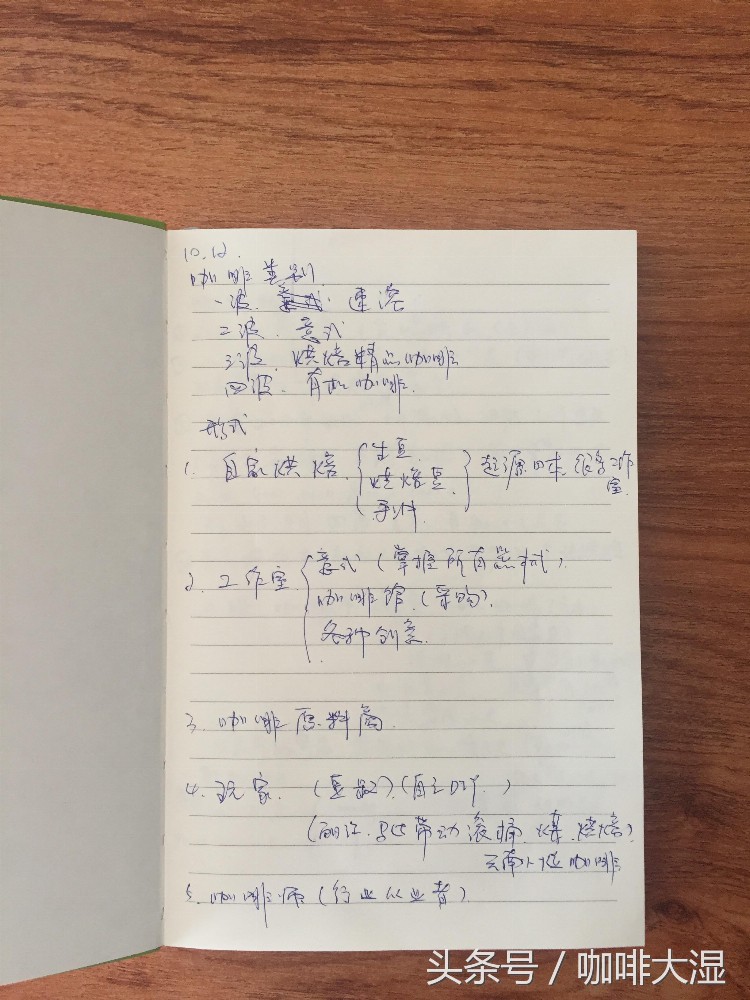 10.12.
咖啡类别
一波. 意式. 速溶
二波. 意式
三波. 烘焙精品咖啡
四波. 有机咖啡.
形式
1. 自家烘焙. { 生豆. 烘焙豆. 手冲. } 起源日本. 很多工作室.
2. 工作室 { 意式 (掌握所有器械). 咖啡馆. (采购). 各种创意.
3. 咖啡原料商.
4. 玩家. (豆板) (自主DIY.)
(丽江. 带动滚桶. 烘焙)
云南小粒咖啡
5. 咖啡师 (行业从业者)
头条号 / 咖啡大湿